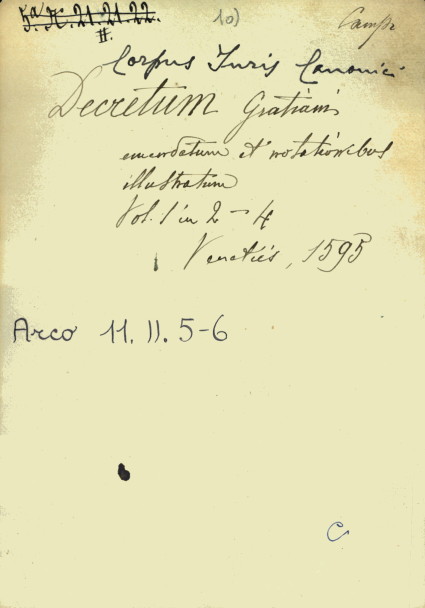 5ª H. 21. 21. 22.
10)
Camp.
II.
Corpus Juris Canonici
Decretum Gratiani
emendatum et notationibus
illustratum
Vol. 1 in 2 - 4
Venetiis, 1595
Arco 11. II. 5-6
C